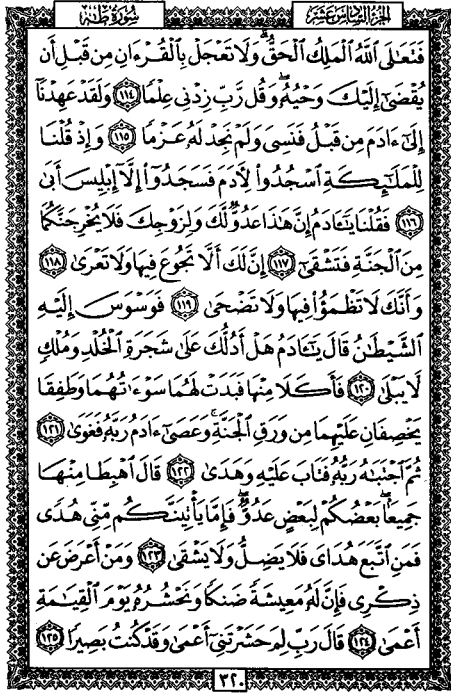 الجزء السادس عشر
سُورَةُ طه
فَتَعَٰلَى ٱللَّهُ ٱلْمَلِكُ ٱلْحَقُّ ۗ وَلَا تَعْجَلْ بِٱلْقُرْءَانِ مِن قَبْلِ أَن
يُقْضَىٰٓ إِلَيْكَ وَحْيُهُۥ ۖ وَقُل رَّبِّ زِدْنِى عِلْمًا ١١٤ وَلَقَدْ عَهِدْنَآ
إِلَىٰٓ ءَادَمَ مِن قَبْلُ فَنَسِىَ وَلَمْ نَجِدْ لَهُۥ عَزْمًا ١١٥ وَإِذْ قُلْنَا
لِلْمَلَٰٓئِكَةِ ٱسْجُدُوا۟ لِءَادَمَ فَسَجَدُوٓا۟ إِلَّآ إِبْلِيسَ أَبَىٰ
١١٦ فَقُلْنَا يَٰٓـَٔادَمُ إِنَّ هَٰذَا عَدُوٌّ لَّكَ وَلِزَوْجِكَ فَلَا يُخْرِجَنَّكُمَا
مِنَ ٱلْجَنَّةِ فَتَشْقَىٰٓ ١١٧ إِنَّ لَكَ أَلَّا تَجُوعَ فِيهَا وَلَا تَعْرَىٰ ١١٨
وَأَنَّكَ لَا تَظْمَؤُا۟ فِيهَا وَلَا تَضْحَىٰ ١١٩ فَوَسْوَسَ إِلَيْهِ
ٱلشَّيْطَٰنُ قَالَ يَٰٓـَٔادَمُ هَلْ أَدُلُّكَ عَلَىٰ شَجَرَةِ ٱلْخُلْدِ وَمُلْكٍ
لَّا يَبْلَىٰ ١٢٠ فَأَكَلَا مِنْهَا فَبَدَتْ لَهُمَا سَوْءَٰتُهُمَا وَطَفِقَا
يَخْصِفَانِ عَلَيْهِمَا مِن وَرَقِ ٱلْجَنَّةِ ۚ وَعَصَىٰٓ ءَادَمُ رَبَّهُۥ فَغَوَىٰ ١٢١
ثُمَّ ٱجْتَبَٰهُ رَبُّهُۥ فَتَابَ عَلَيْهِ وَهَدَىٰ ١٢٢ قَالَ ٱهْبِطَا مِنْهَا
جَمِيعًۢا ۖ بَعْضُكُمْ لِبَعْضٍ عَدُوٌّ ۖ فَإِمَّا يَأْتِيَنَّكُم مِّنِّى هُدًى
فَمَنِ ٱتَّبَعَ هُدَاىَ فَلَا يَضِلُّ وَلَا يَشْقَىٰ ١٢٣ وَمَنْ أَعْرَضَ عَن
ذِكْرِى فَإِنَّ لَهُۥ مَعِيشَةً ضَنكًا وَنَحْشُرُهُۥ يَوْمَ ٱلْقِيَٰمَةِ
أَعْمَىٰ ١٢٤ قَالَ رَبِّ لِمَ حَشَرْتَنِىٓ أَعْمَىٰ وَقَدْ كُنتُ بَصِيرًا ١٢٥
٣٢٠